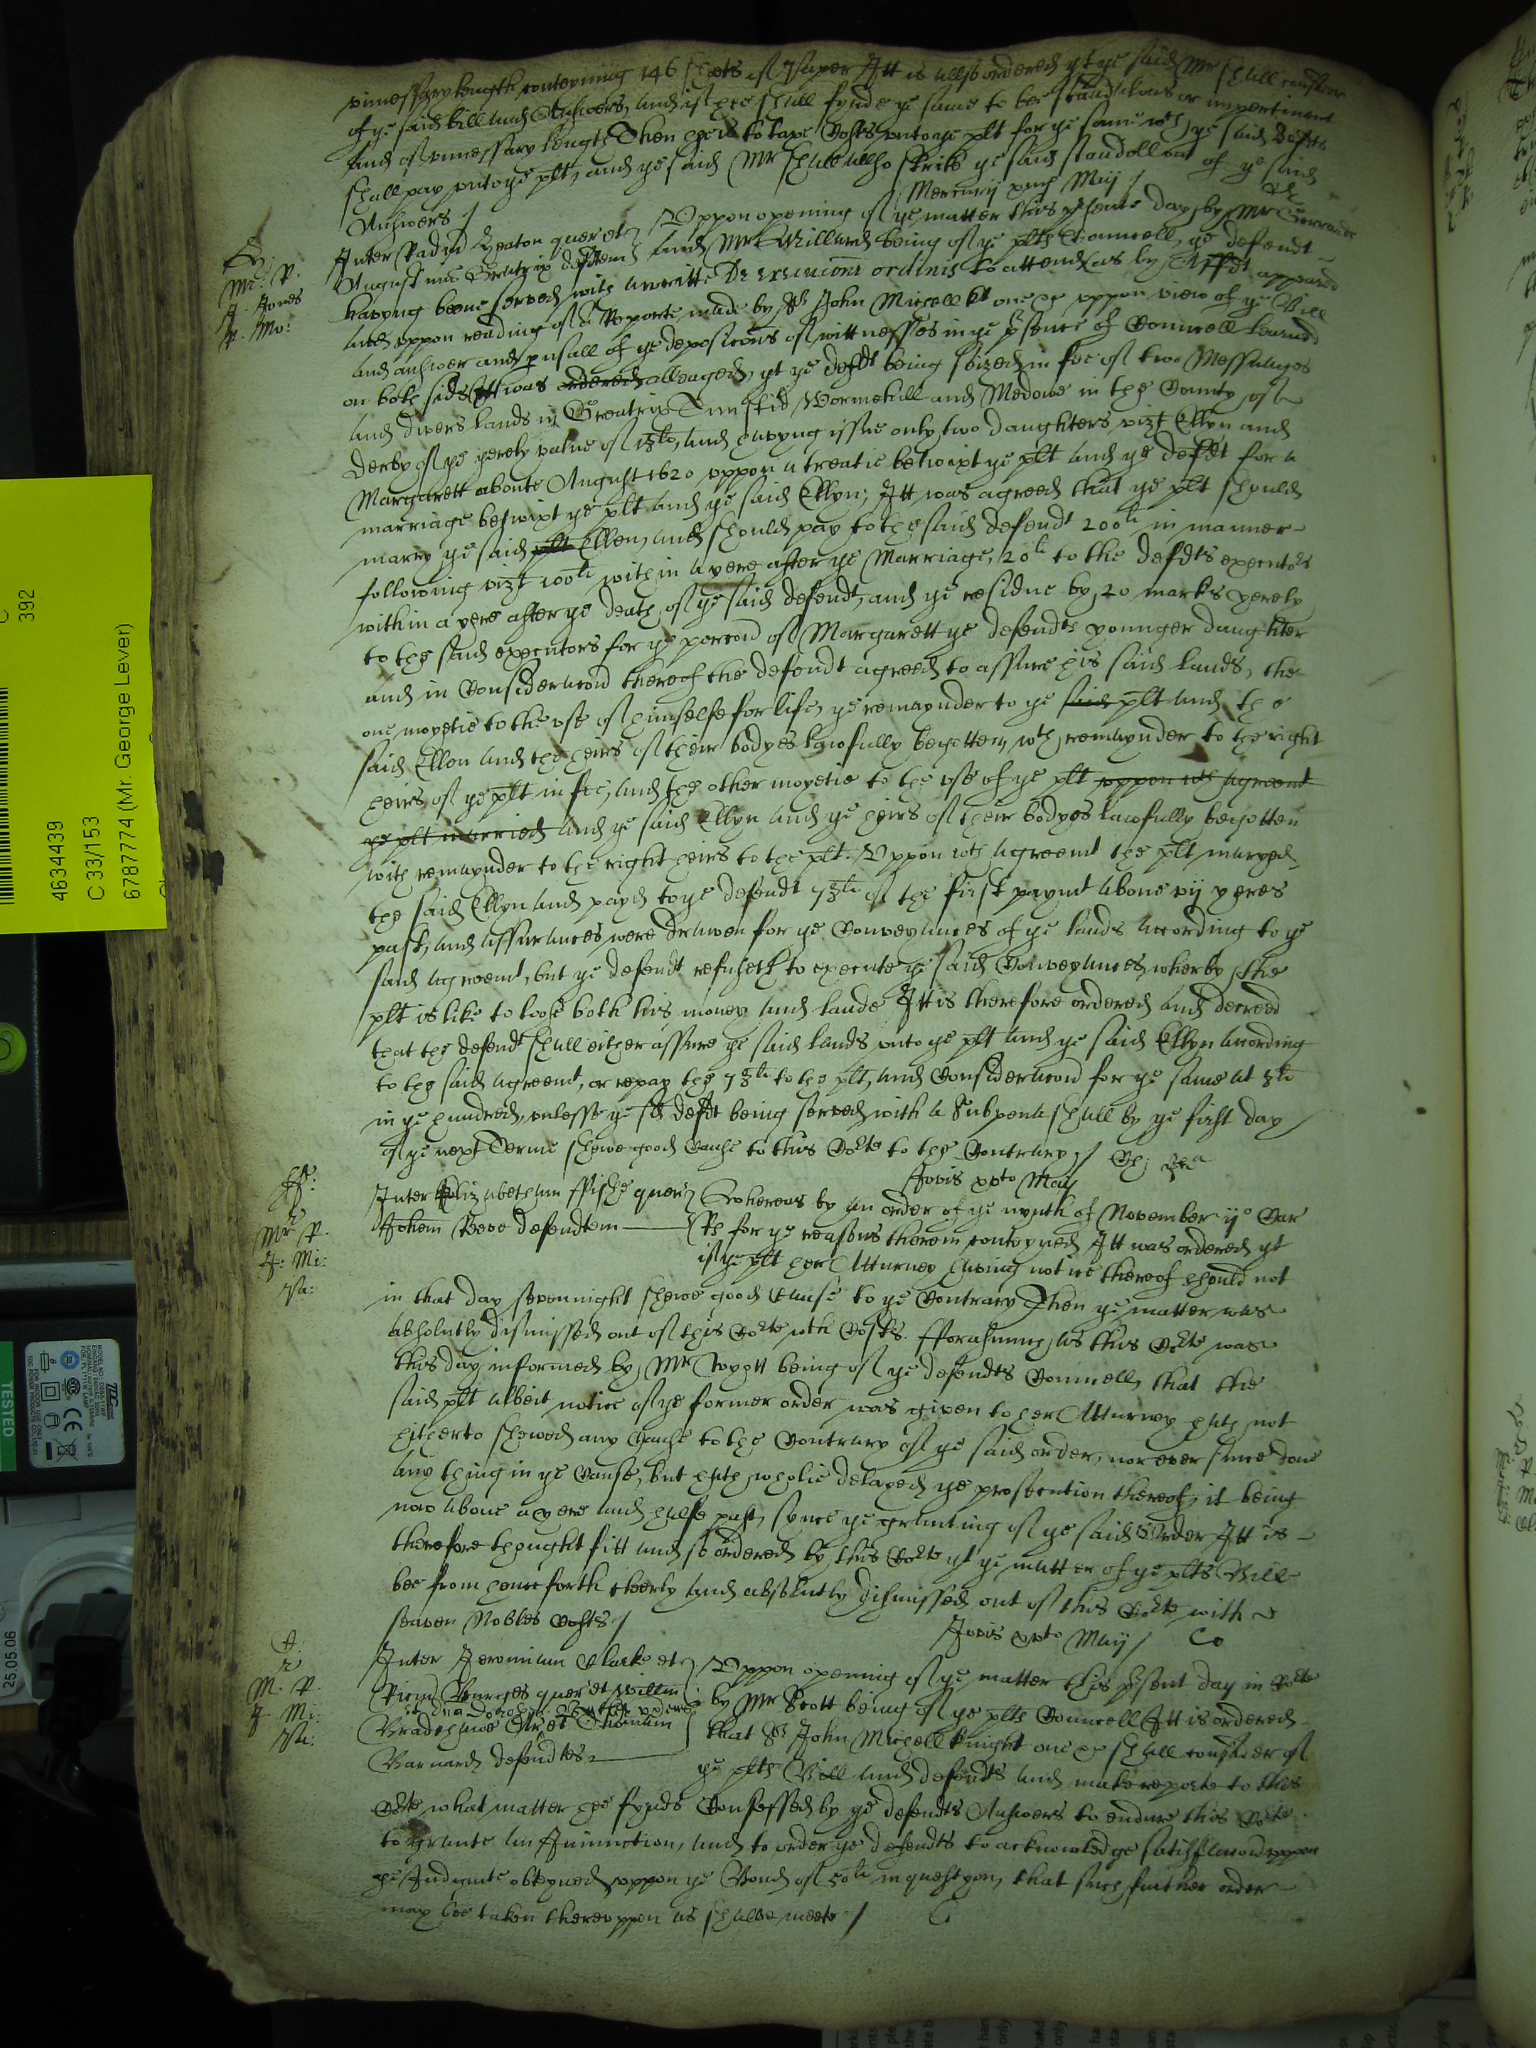 vnnessary length conteyning 146 sheets of paper Itt is allso ordered yt ye said Mr shall consider
of ye said bill and Answers, and if hee shall fynde ye same to bee scandulous or impertinent
and of vnnessary length Then hee is to taxe Costs vnto ye plt for ye same wch ye said Defts
shall pay vnto ye plt, and ye said Mr shall allso strike ye said scandall out of ye said
Answers / Mercurij Maij /
Inter Beaton quer et Vppon opening of ye matter this psente day by Mr
August defdtem and Mr Willard being of ye plts Councell, ye defendt
haveing beene served with a writte De execucione ordinis to attend as by Affdt appeared
and vppon reading of a Reporte made by Sr John Michell kt one &c vppon view of ye Bill
and answer and pusall of ye deposicons of wittnesses in ye psence of Councell learned
on both sides Itt was ordered alleaged, yt ye defdt being seized in fee of two Messuages
and divers lands in Greatrix Tunsted Wormehill and Medowe in the County of
Derby of ye yerely value of and haveing issue only two daughters vizt Ellyn and
Margarett aboute August 1620 vppon a treatie betwixt ye plt and ye defdt for a
marriage betwixt ye plt and ye said Ellyn; Itt was agreed that ye plt should
marry ye said plt Ellen, and should pay to the said defendt 200li in manner
following vizt 100li within a yere after ye Marriage, 20li to the defdts executors
within a yere after ye death of ye said defendt, and ye residue by 20 marks yerely
to the said executors for ye porcon of Margarett ye defendts younger daughter
and in Consideracon thereof the defendt agreed to assure his said lands, the
one moyetie to the vse of himselfe for life, ye remaynder to ye said plt and the
said Ellen and the heirs of their bodyes lawfully begotten, wth remaynder to the right
heirs of ye plt in fee, and the other moyetie to the vse of ye plt vppon wch agreemt
ye plt married and ye said Ellyn and ye heirs of their bodyes lawfully begotten
with remaynder to the right heirs to the plt. Vppon wch agreemt the plt maryed
the said Ellyn and payd to ye defendt 78li of the first paymt above vij yeres
past, and assurances were drawen for ye Conveyances of ye lands according to ye
said agreemt, but ye defendt refuseth to execute ye said Conveyances, wherby the
plt is like to loose both his money and lande Itt is therefore ordered and decreed
that the defendt shall either assure ye said lands vnto ye plt and ye said Ellyn according
to the said agreemt, or repay the 78li to the plt, and Consideracon for ye same at 8li
in ye hundred, vnlesse ye sd defdt being served with a Subpena shall by ye first day
of ye next Terme shewe good Cause to this Corte to the Contrary /
Jovis xvto May
Inter Elizabetham ffishe quer Whereas by an order of ye nynth of November ijo Car
Johem defendtem Rs for ye reasons therein conteyned Itt was ordered yt
if ye plt her Atturney having notice thereof should not
in that day sevennight shewe good Cause to ye Contrary Then ye matter was
absolutly dismissed out of this Corte wth Costs. fforasmuch as this Corte was
this day informed by Mr Wyatt being of ye defendts Councell, that the
said plt albeit notice of ye former order was given to her Atturney hath not
hitherto shewed any Cause to the Contrary of ye said order, nor ever since done
any thing in ye Cause, but hath wholie delayed ye prosecution thereof, it being
now above a yere and halfe past, synce ye graunting of ye said Order Itt is
therefore thought fitt and so ordered by this Corte yt ye matter of ye plts Bill
bee from henceforth cleerly and absolutly dismissed out of this Corte with
seaven Nobles Costs /
Jovis xvto Maij / Co
Inter Jeronimum Clarke et Vppon opening of ye matter this psent day in Corte
Burges quer et Willm by Mr Scott being of ye plts Councell Itt is ordered
Bradshawe et Thomam that Sr John Michell knight one &c shall consider of
Barnard defendtes ye plts Bill and defendts and make reporte to this
Corte what matter hee fynds Confessed by ye defendts Answers to endure this Corte
to graunte an Iniunction, and to order ye defendts to acknowledge satisfaccon vppon
ye Iudgmte obteyned vppon ye Bond of 50li in question, that such further order
may bee taken therevppon as shalbe meete /
4634439
C 33/153
67877774 (Mr. George Lever)
392
TESTED
25.05.06